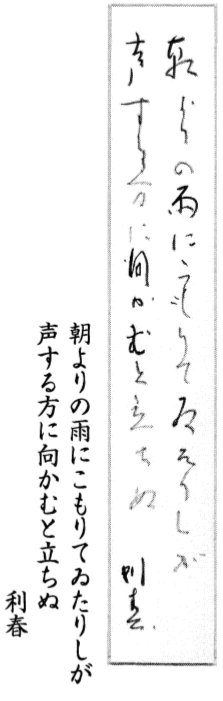 朝よりの雨にこもりてゐたりしが
声する方に向かむと立ちぬ
利春
朝よりの雨にこもりてゐたりしが
声する方に向かむと立ちぬ
利春